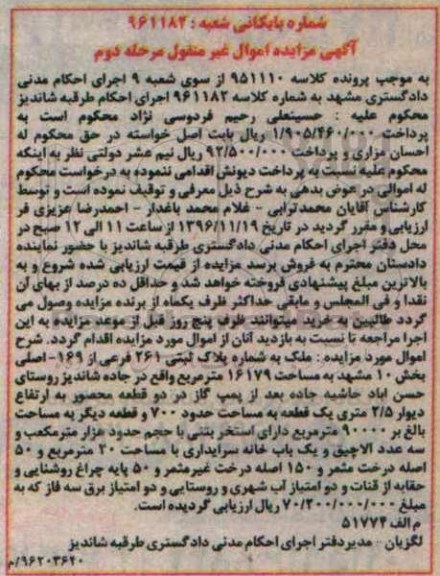 شماره بایگانی شعبه : ۹۶۱۱۸۲
آگهی مزایده اموال غیر منقول مرحله دوم
به موجب پرونده کلاسه ۹۵۱۱۱۰ از سوی شعبه ۹ اجرای احکام مدنی
دادگستری مشهد به شماره کلاسه ۹۶۱۱۸۲ اجرای احکام طرقبه شاندیز
محکوم علیه : حسینعلی رحیم فردوسی نژاد محکوم است به
پرداخت ۱/۹۰۵/۴۶۰/۰۰۰ ریال بابت اصل خواسته در حق محکوم له
احسان مزاری و پرداخت ۹۲/۵۰۰/۰۰۰ ریال نیم عشر دولتی نظر به اینکه
محکوم علیه نسبت به پرداخت دیونش اقدامی ننموده به درخواست محکوم
له اموالی در عوض بدهی به شرح ذیل معرفی و توقیف نموده است و توسط
کارشناس آقایان محمدترابی - غلام محمد باغدار - احمدرضا عزیزی فر
ارزیابی و مقرر گردید در تاریخ ۱۳۹۶/۱۱/۱۹ از ساعت ۱۱ الی ۱۲ صبح در
محل دفتر اجرای احکام مدنی دادگستری طرقبه شاندیز با حضور نماینده
دادستان محترم به فروش برسد مزایده از قیمت ارزیابی شده شروع و به
بالاترین مبلغ پیشنهادی فروخته خواهد شد و حداقل ده درصد از بهای آن
نقدا و فی المجلس و مابقی حداکثر ظرف یکماه از برنده مزایده وصول می
گردد طالبین به خرید میتوانند ظرف پنج روز قبل از موعد مزایده به این
اجرا مراجعه تا نسبت به بازدید آنان از اموال مورد مزایده اقدام گردد. شرح
اموال مورد مزایده : ملک به شماره پلاک ثبتی ۲۶۱ فرعی از ۱۶۹- اصلی
بخش ۱۰ مشهد به مساحت ۱۶۱۷۹ مترمربع واقع در جاده شاندیز روستای
حسن اباد حاشیه جاده بعد از پمپ گاز در دو قطعه محصور به ارتفاع
دیوار ۲/۵ متری یک قطعه به مساحت حدود ۷۰۰ و قطعه دیگر به مساحت
بالغ بر ۹۰۰۰۰ مترمربع دارای استخر بتنی با حجم حدود هزار مترمکعب و
سه عدد الاچیق و یک باب خانه سرایداری با مساحت ۲۰ مترمربع و ۵۰
اصله درخت مثمر و ۱۵۰ اصله درخت غیرمثمر و ۵۰ پایه چراغ روشنایی و
حقابه از قنات و دو امتیاز آب شهری و روستایی و دو امتیاز برق سه فاز که به
مبلغ ۷۰/۲۰۰/۰۰۰/۰۰۰ ریال ارزیابی گردیده است.
م الف ۵۱۷۷۴
لگزیان - مدیر دفتر اجرای احکام مدنی دادگستری طرقبه شاندیز
۹۶۲۰۳۶۴۰/م